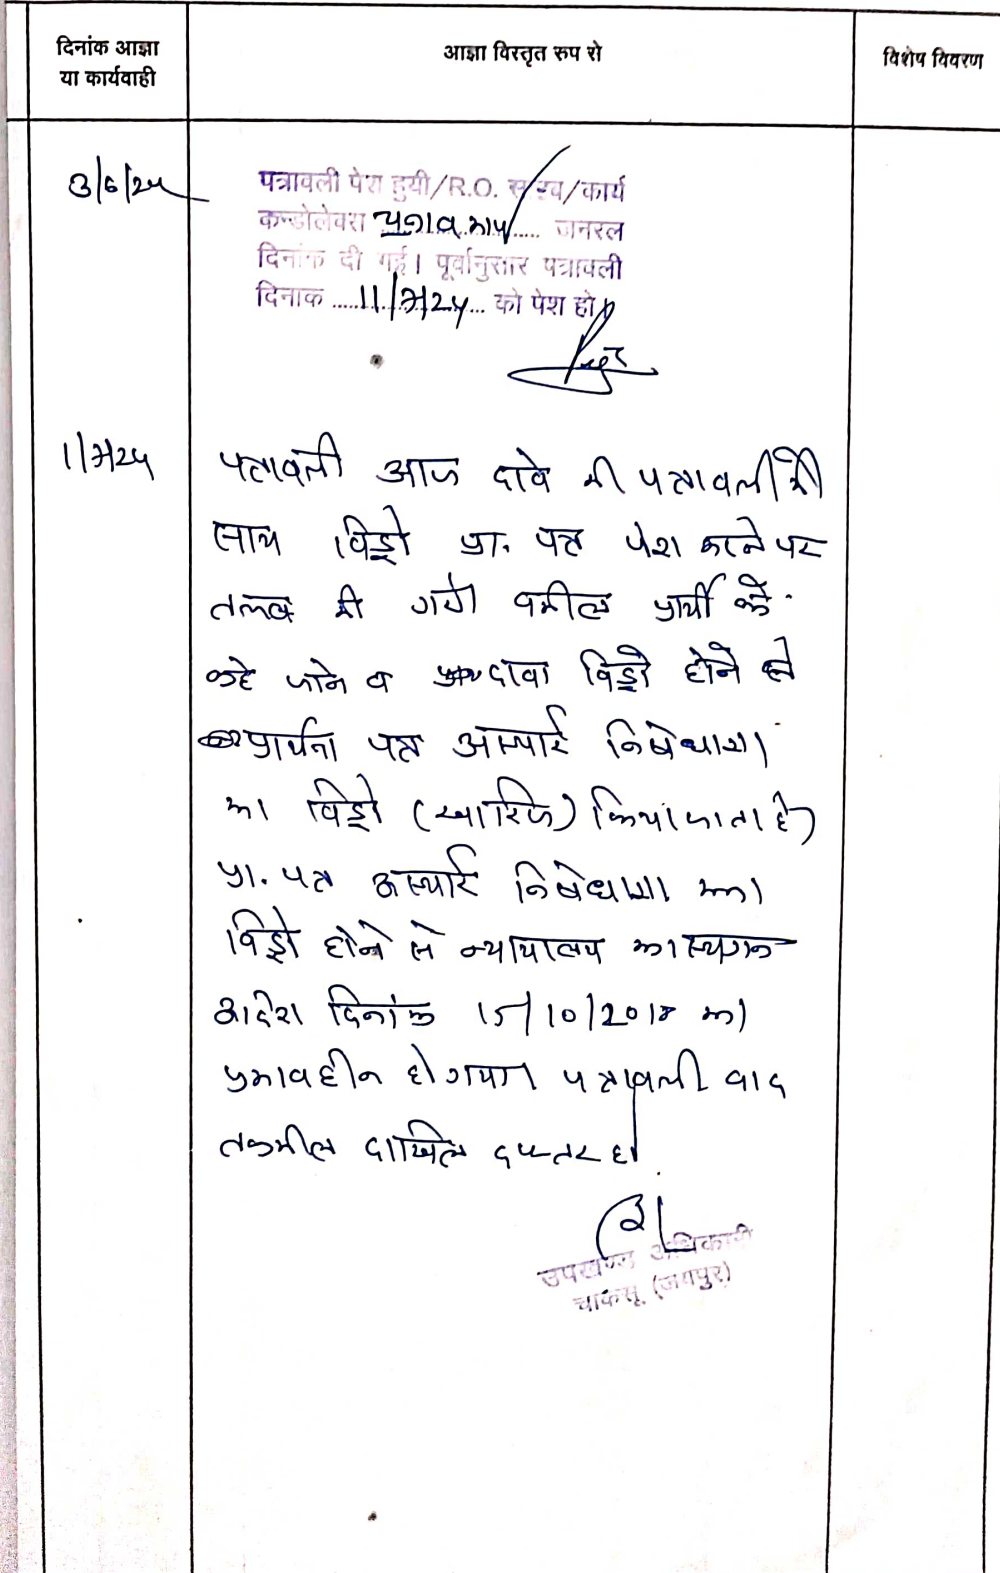 दिनांक आज्ञा
या कार्यवाही
आज्ञा विस्तृत रुप रो
विशेष विवरण
3/6/24
पत्रावली पेश हुयी/R.O. /कार्य
चुनाव कार्य जनरल
दिनांक दी गई। पूर्वानुसार पत्रावली
दिनाक ..... 11/7/24 ... को पेश हो
11/7/24
पत्रावली आज दावे की पत्रावली के
साथ विड्रो प्रा. पत्र पेश करने पर
तलब की गयी वकील प्रार्थी के
कहे जाने व दावा विड्रो होने से
प्रार्थना पत्र अस्थाई निषेधाज्ञा
का विड्रो (खारिज) किया जाता है
प्रा. पत्र अस्थाई निषेधाज्ञा का
विड्रो होने से न्यायालय का स्थगन
आदेश दिनांक 15/10/2018 का
प्रभावहीन हो गया। पत्रावली बाद
तकमील दाखिल दफ्तर हो
उपखण्ड अधिकारी
चाकसू (जयपुर)